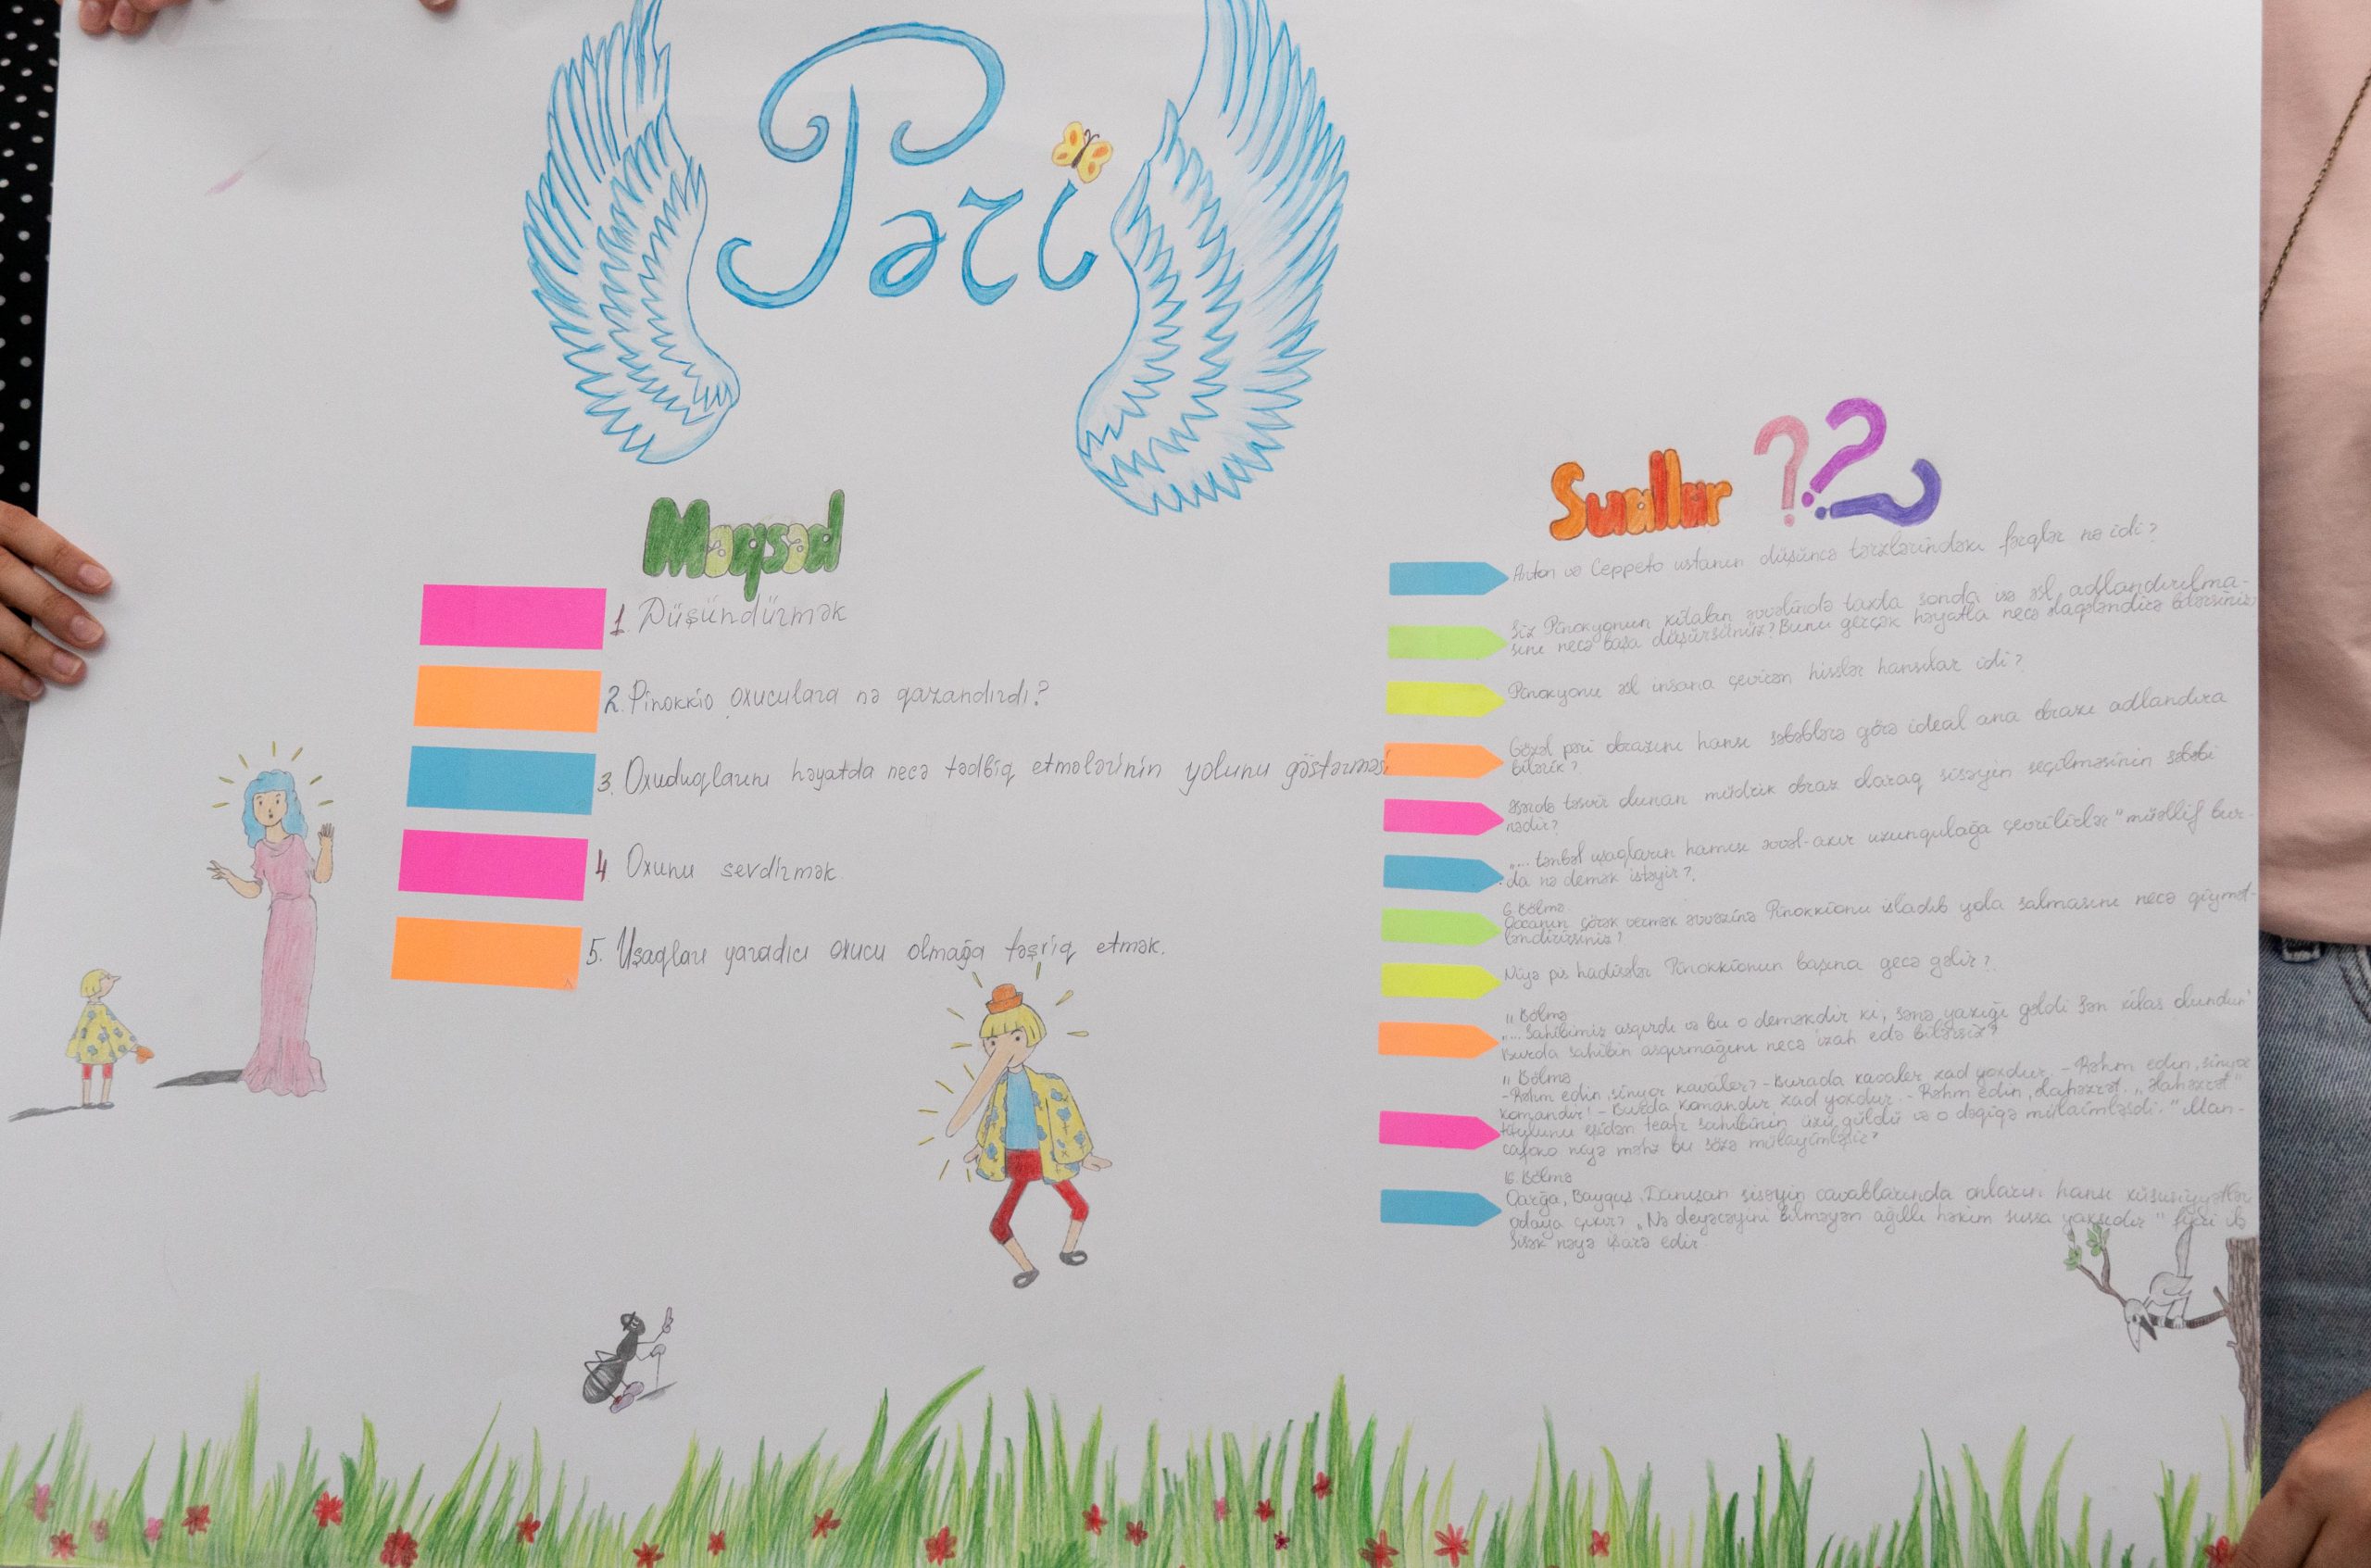 Pəri
Məqsəd
1. Düşündürmək
2. Pinokkio oxuculara nə qazandırdı?
3. Oxuduqlarını həyatda necə tədbiq etmələrinin yolunu göstərməsi
4 Oxunu sevdirmək
5. Uşaqları yaradıcı oxucu olmağa təşriq etmək.
Suallar ???
Anton və Ceppeto ustanın düşüncə tərzlərindəki fərqlər nə idi?
Siz Pinokyonun kitabın əvvəlində taxta sonda isə əsl adlandırılma-
sını necə başa düşürsünüz? Bunu gerçək həyatla necə əlaqələndirə bilərsiniz
Pinokyonu əsl insana çevirən hisslər hansılar idi?
Gözəl pəri obrazını hansı səbəblərə görə ideal ana obrazı adlandıra
bilərik?
Əsərdə təsvir olunan müdrik obraz olaraq sisəyin seçilməsinin səbəbi
nədir?
"... tənbəl uşaqların hamısı əvvəl-axır uzunqulağa çevrilirlər" müəllif bur-
da nə demək istəyir?
6. Bölmə
Qocanın çörək vermək əvəzinə Pinokkionu isladıb yola salmasını necə qiymət-
ləndirirsiniz?
Niyə pis hadisələr Pinokkionun başına gecə gəlir?
11 Bölmə
"... Sahibimiz asqırdı və bu o deməkdir ki, sənə yazığı gəldi sən xilas olundun"
Burda sahibin asqırmağını necə izah edə bilərsiz?
11 Bölmə
-Rəhm edin sinyor kavaler? - Burada kavaler zad yoxdur. - Rəhm edin, sinyor
komandir! - Burda komandir zad yoxdur. - Rəhm edin, əlahəzrət. "Əlahəzrət"
titulunu eşidən teatr sahibinin üzü güldü və o dəqiqə mülaimləşdi." Man-
cafoko niyə məhz bu sözə mülayimləşir?
16. Bölmə
Qarğa, Bayquş, Danışan sisəyin cavablarında onların hansı xüsusiyyətləri
odaya çıxır? "Nə deyəcəyini bilməyən ağıllı həkim sussa yaxşıdır" fikri ilə
Sisək nəyə işarə edir.